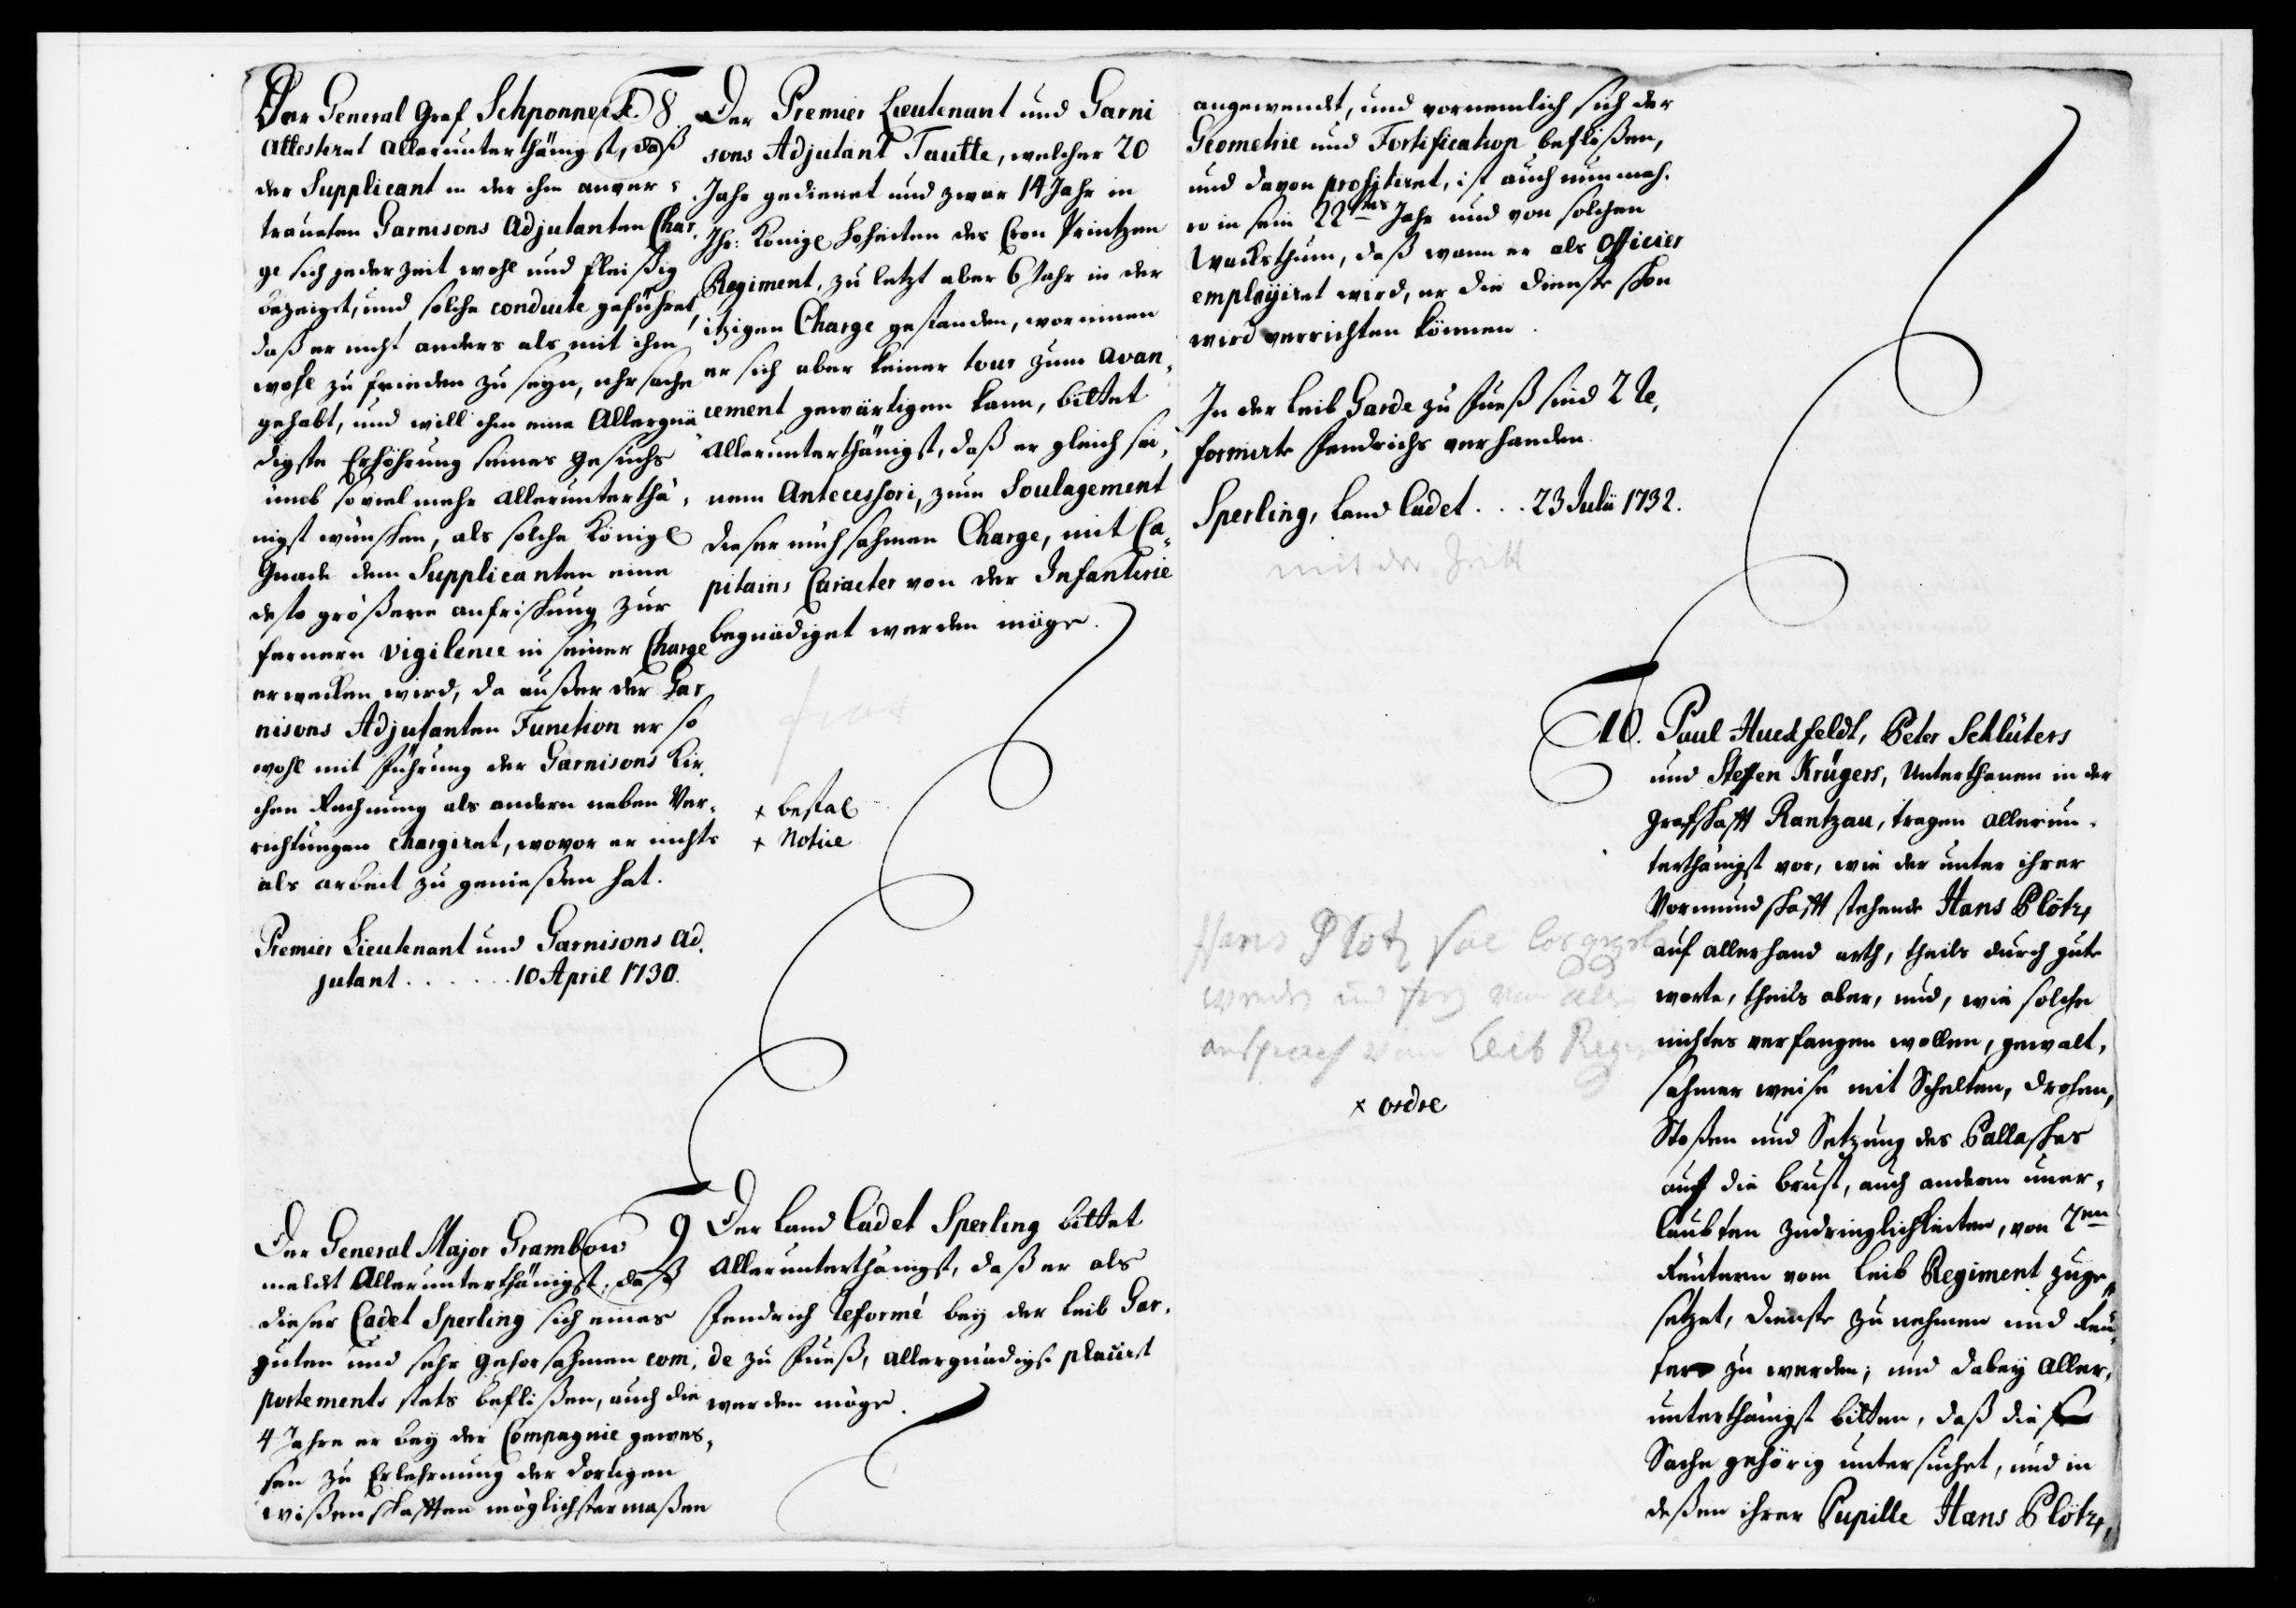 Der General Graf Schponneck
attestiret allerunterthänigst, daß
der Supplicant in der ihm anver-
traueten Garnisons Adjutanten Char
ge sich jederzeit wohl und fleißig
bezeiget, und solche conduite geführet,
daß er nicht anders als mit ihm
wohl zu frieden zu seyn, uhrsache
gehabt, und will ihm eine Allergnä
digste Erhöhrung seines Gesuchs
umb so viel mehr allerunterthä-
nigst wünschen, als solche Königl
Gnade dem Supplicanten eine
desto größere anfrischung zur
fernern vigilence in seiner Charge
erwecken wird, da außer der Gar
nisons Adjutanten Function er so
wohl mit Führung der Garnisons Kir
chen Rechnung als andern neben Ver-
richtungen chargiret, wovor er nichts
als arbeit zu genießen hat.
Premier Lieutenant und Garnisons Ad
jutant . . . . . . 10 April 1730.
8. Der Premier Lieutenant und Garni
sons Adjutant Tautte, welcher 20
Jahr gedienet und zwar 14 Jahr in
Ihr: Königl Hoheiten des Cron Printzen
Regiment, zu letzt aber 6 Jahr in der
itzigen Charge gestanden, worinnen
er sich aber keiner tour zum avan-
cement gewärtigen kann, bittet
Allerunterthänigst, daß er gleich sei-
nem Antecessori, zum Soulagement
dieser mühsahmen Charge, mit Ca-
pitains Caracter von der Infanterie
begnädiget werden möge.
+ bestal
+ Notice
Der General Major Grambow
meldet Allerunterthänigst, daß
dieser Cadet Sperling sich eines
guten und sehr gehorsahmen com-
portements stets beflißen, auch die
4 Jahre er bey der Compagnie gewe-
sen zu Erlehrnung der dortigen
wißenschafften möglichstermaßen
9 Der Land Cadet Sperling bittet
Allerunterthänigst, daß er als
Fendrich reformé bey der Leib Gar-
de zu Fueß, allergnädigst placiret
werden möge.
angewendt, und vornemlich sich der
Geometrie und Fortification beflißen,
und davon profitiret, ist auch nunmeh-
ro in sein 22tes Jahr und von solchen
Wachsthum, daß wann er als Officier
employiret wird, er die Dienste schon
wird verrichten können.
In der Leib Garde zu Fueß sind 2 Re-
formirte Fendrichs verhanden.
Sperling, Land Cadet . . . 23 Julii 1732.
mit der Zeitt
10. Paul Huesfeldt, Peter Schlüters
und Steffen Krügers, Unterthanen in der
Grafschafft Rantzau, tragen allerun-
terthänigst vor, wie der unter ihrer
Vormundschafft stehende Hans Plötz,
auf allerhand arth, theils durch gute
worte, theils aber, und, wie solche
nichtes verfangen wollen, gewalt-
sahmer weise mit Schelten, drohen,
Stoßen und Setzung des Pallasches
auf die brust, auch andern uner-
laubten zudringlichkeiten, von 2en
Reütern vom Leib Regiment zuge-
setzet, dienste zu nehmen und Reü-
ter zu werden; und dabey aller-
unterthänigst bitten, daß die
Sache gehörig untersuchet, und in
deßen ihrer Pupille Hans Plötz,
Hans Plötz
Leib
× ordre